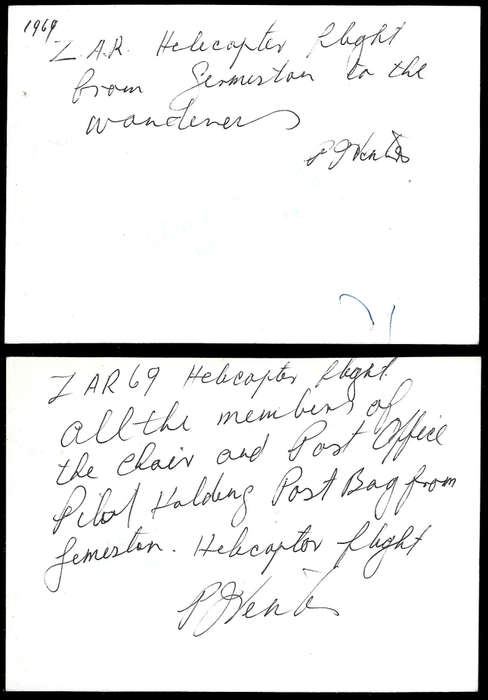 1969
Z A.R. Helecopter flight
from Germeston to the
wanderers
P J Venter
Z AR 69 Helecopter flight.
all the members of
the chair and Post Office
Pilot Holding Post Bag from
Gemeston. Helecoptor flight
P J Venter